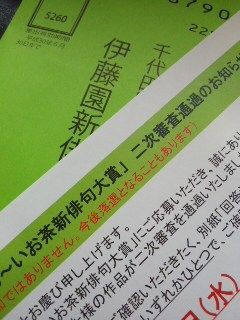 5260
差出有効期間
平成30年6月
30日まで
790
22
千代田
伊藤園新俳
～いお茶新俳句大賞」二次審査通過のお知らせ
ではありません。今後落選となることもあります）
お慶び申し上げます。
いお茶新俳句大賞」にご応募いただき、誠にあり
様の作品が二次審査を通過いたしまし
確認いただきたく、別紙「回答
いずれかひとつで、ご
（水）